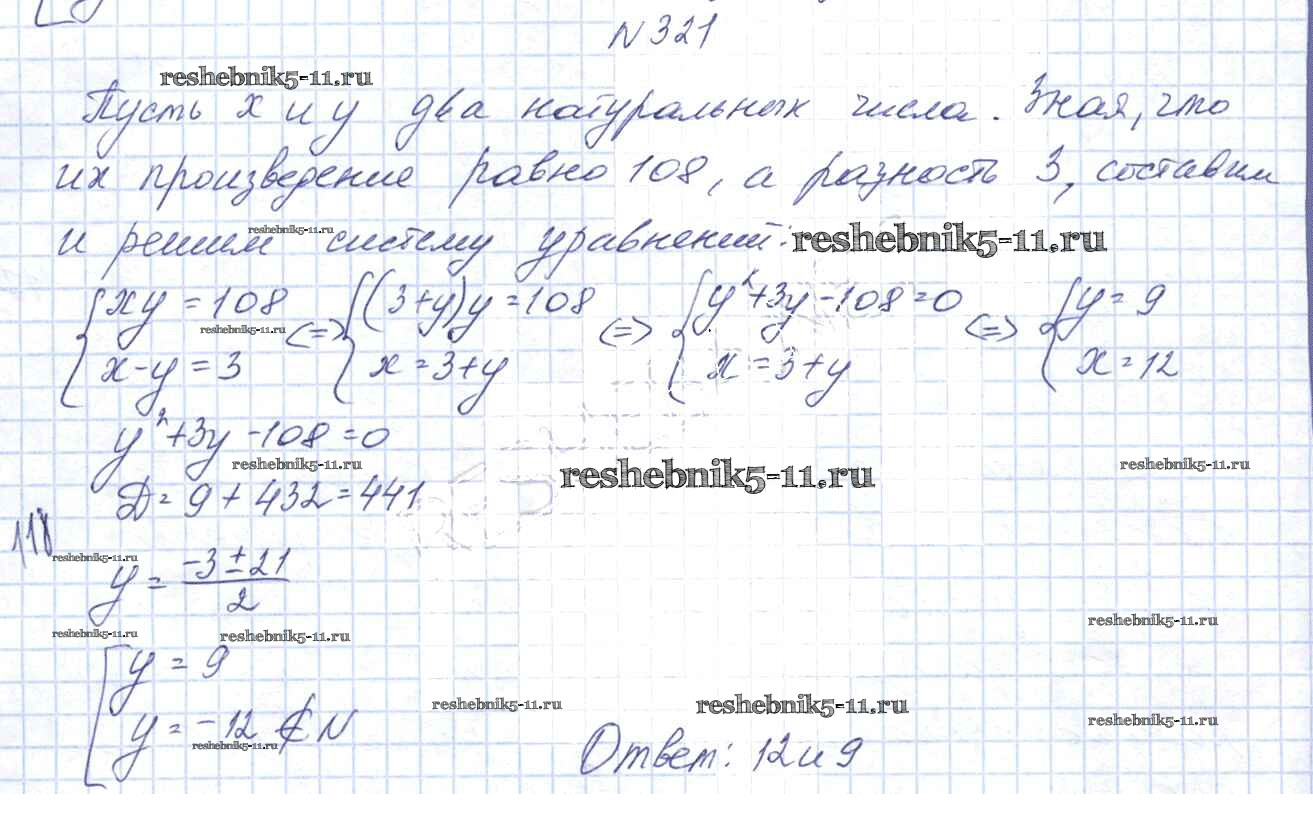 N 321
reshebnik5-11.ru
Пусть x и y два натуральных числа. Зная, что
их произведение равно 108, а разность 3, составим
reshebnik5-11.ru
и решим систему уравнений: reshebnik5-11.ru
{xy = 108 (=) {(3+y)y = 108 (=) {y²+3y-108=0 (=) {y = 9
reshebnik5-11.ru
x-y = 3 x = 3+y x = 3+y x = 12
y²+3y-108=0
reshebnik5-11.ru reshebnik5-11.ru reshebnik5-11.ru
D = 9 + 432 = 441
reshebnik5-11.ru
y = (-3±21)/2
reshebnik5-11.ru
reshebnik5-11.ru reshebnik5-11.ru
[y = 9
reshebnik5-11.ru reshebnik5-11.ru
y = -12 ∉ N
reshebnik5-11.ru reshebnik5-11.ru
Ответ: 12 и 9